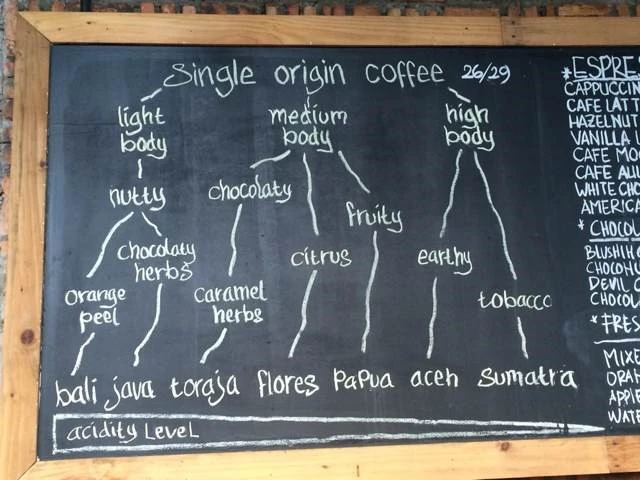 Single origin coffee 26/29
light body
medium body
high body
nutty
chocolaty
fruity
chocolaty herbs
citrus
earthy
orange peel
caramel herbs
tobacco
bali java toraja flores papua aceh sumatra
acidity level
*ESPRE
CAPPUCCIN
CAFE LATT
HAZELNUT
VANILLA L
CAFE MO
CAFE AU
WHITE CHO
AMERICA
* CHOCOL
BLUSHING
CHOCONU
DEVIL C
CHOCOL
* FRES
MIXE
ORAN
APPLE
WATE